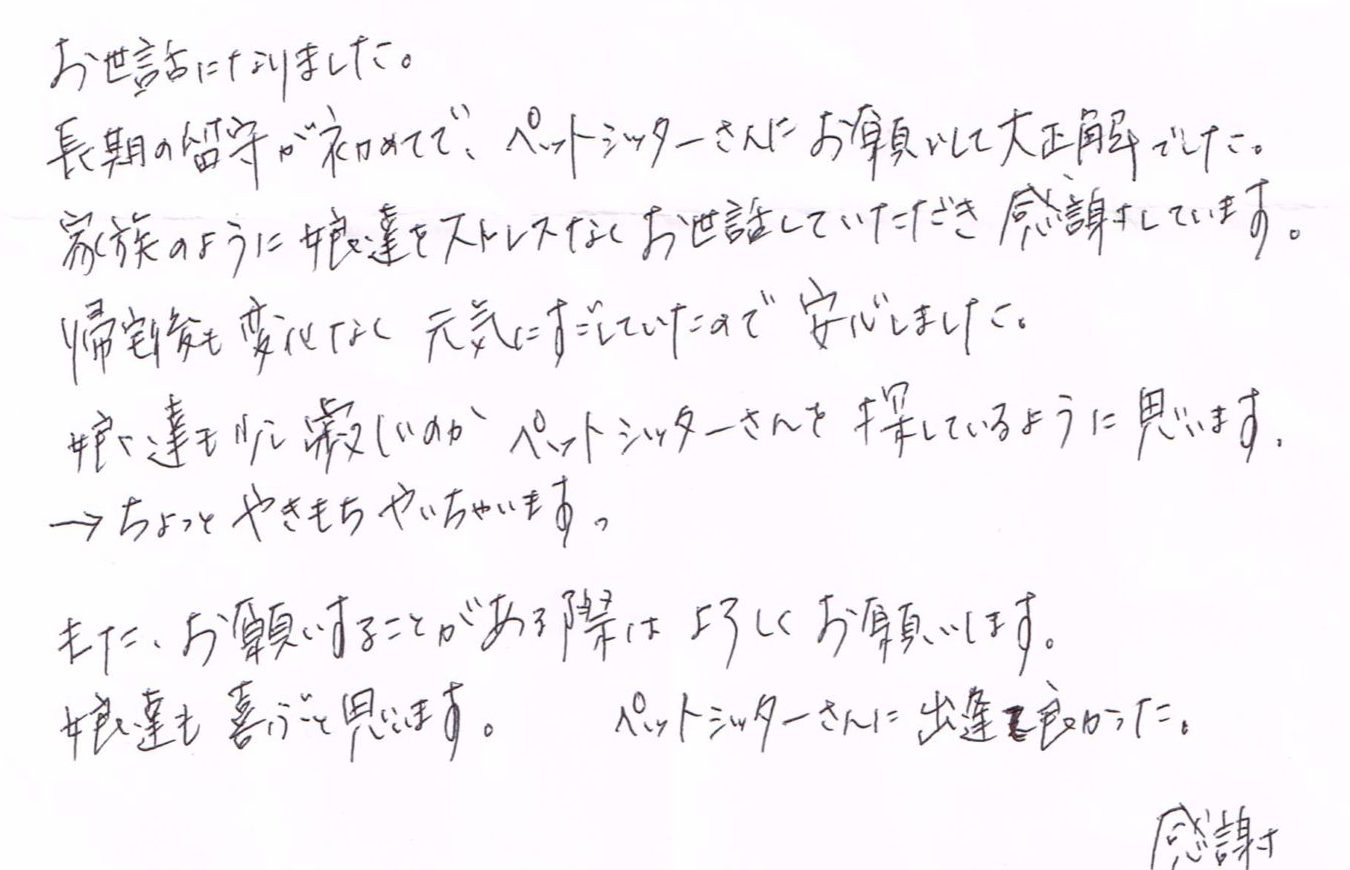 お世話になりました。
長期の留守が初めてで、ペットシッターさんにお願いして大正解でした。
家族のように娘達をストレスなくお世話していただき感謝しています。
帰宅後も変化なく元気にすごしていたので安心しました。
娘達も少し寂しいのかペットシッターさんを探しているように思います。
→ちょっとやきもちやいちゃいます。
また、お願いすることがある際はよろしくお願いします。
娘達も喜ぶと思います。 ペットシッターさんに出逢て良かった。
感謝